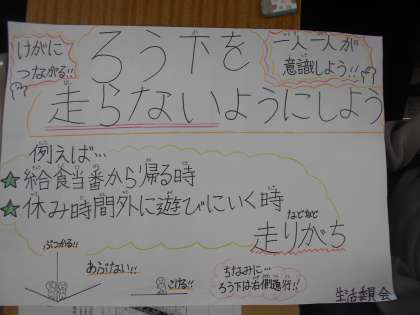 けがに
つながる!!
ろう下を
一人一人が
意識しよう!!
走らないようにしよう
例えば…
給食当番から帰る時
休み時間外に遊びにいく時
などなど
走りがち
ぶつかる!!
あぶない!!
こける!!
ちなみに…
ろう下は右側通行!!
生活委員会